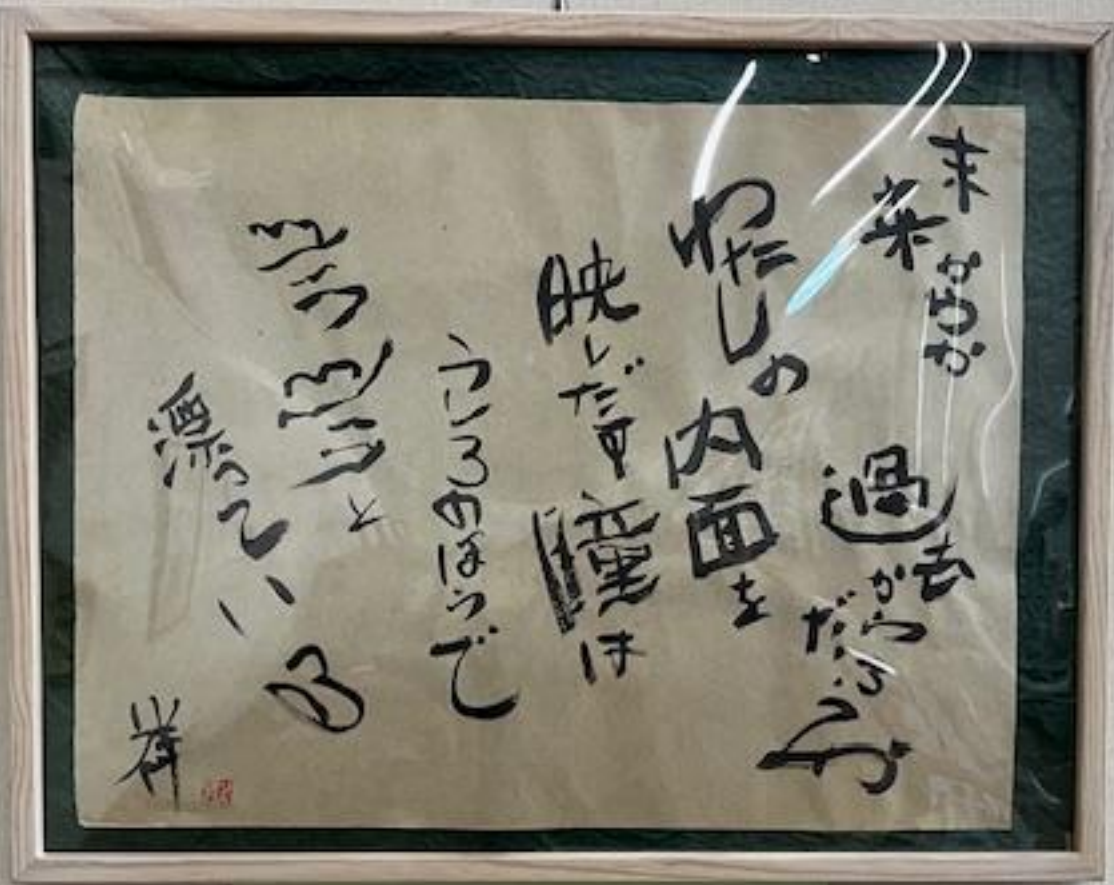 未来からか
過去からだろうか
わたしの内面を
映しだす瞳は
うしろのほうで
と
漂っている
祥